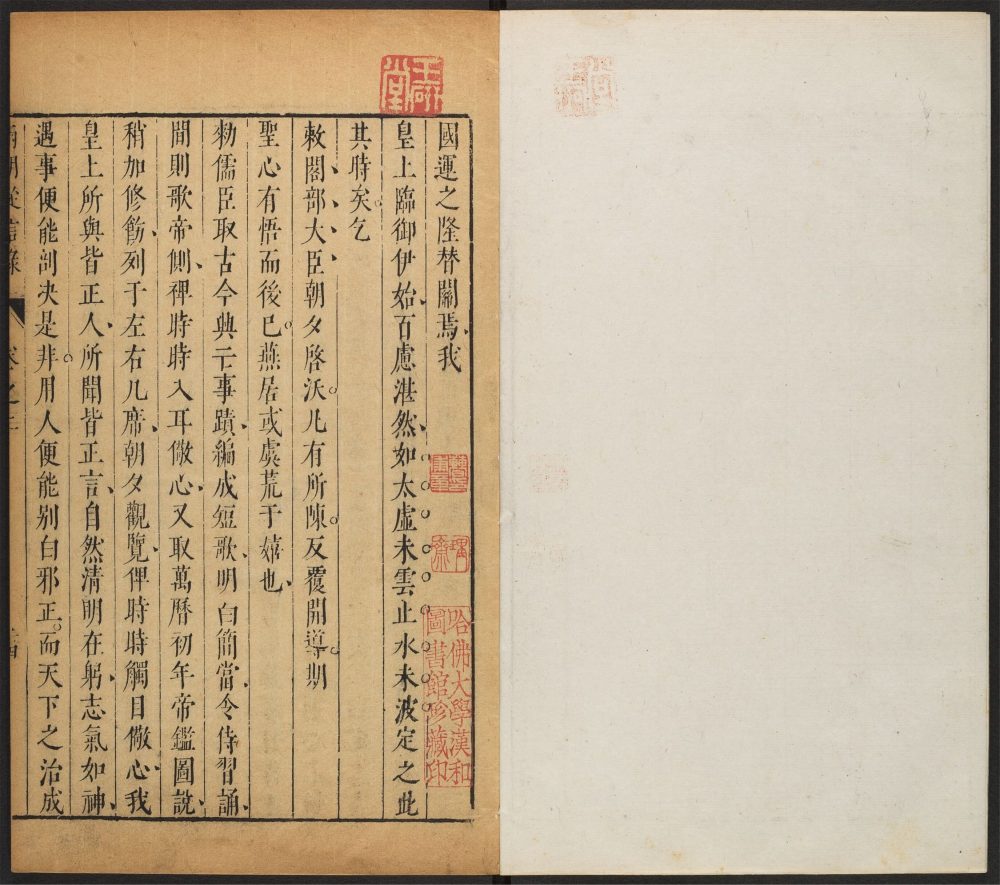 國運之隆替關焉我
皇上臨御伊始百慮湛然如太虛未雲止水未波定之此
其時矣乞
敕閣部大臣朝夕啓沃凡有所陳反覆開導期
聖心有悟而後已燕居或虞荒于嬉也
勑儒臣取古今興亡事蹟編成短歌明白簡當令侍習誦
間則歌帝側裨時時入耳儆心又取萬曆初年帝鑑圖說
稍加修飭列于左右几席朝夕觀覽俾時時觸目儆心我
皇上所與皆正人所聞皆正言自然清明在躬志氣如神
遇事便能剖决是非用人便能别白邪正而天下之治成
兩朝從信錄
卷之
哈佛大學漢和
圖書館珍藏印